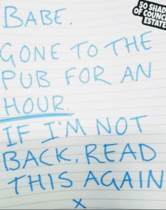 BABE.
GONE TO THE
PUB FOR AN
HOUR.
IF I'M NOT
BACK, READ
THIS AGAIN
x
50 SHADES
OF COUNCIL
ESTATE